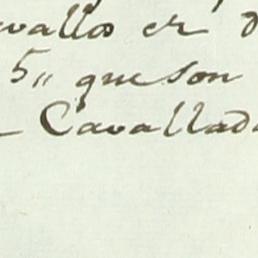 avallos er d
5,, que son
Cavallad